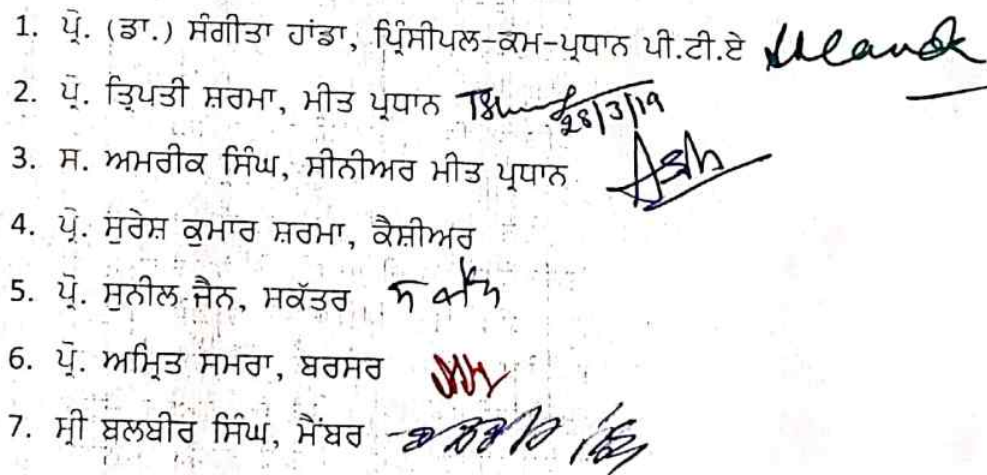 1. ਪ੍ਰੋ. (ਡਾ.) ਸੰਗੀਤਾ ਹਾਂਡਾ, ਪ੍ਰਿੰਸੀਪਲ-ਕਮ-ਪ੍ਰਧਾਨ ਪੀ.ਟੀ.ਏ
2. ਪ੍ਰੋ. ਤ੍ਰਿਪਤੀ ਸ਼ਰਮਾ, ਮੀਤ ਪ੍ਰਧਾਨ 28/3/19
3. ਸ. ਅਮਰੀਕ ਸਿੰਘ, ਸੀਨੀਅਰ ਮੀਤ ਪ੍ਰਧਾਨ
4. ਪ੍ਰੋ. ਸੁਰੇਸ਼ ਕੁਮਾਰ ਸ਼ਰਮਾ, ਕੈਸ਼ੀਅਰ
5. ਪ੍ਰੋ. ਸੁਨੀਲ ਜੈਨ, ਸਕੱਤਰ
6. ਪ੍ਰੋ. ਅਮ੍ਰਿਤ ਸਮਰਾ, ਬਰਸਰ
7. ਸ਼੍ਰੀ ਬਲਬੀਰ ਸਿੰਘ, ਮੈਂਬਰ